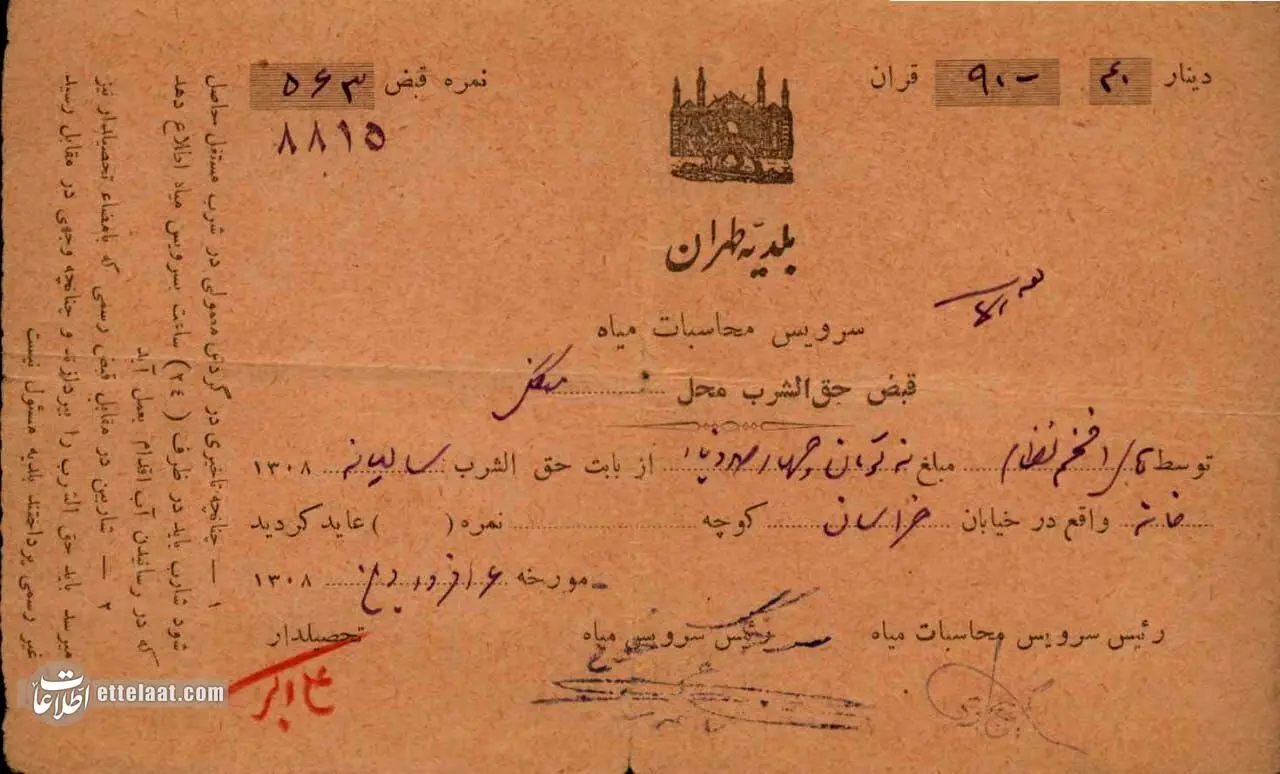 دینار ۴۰ قران ۹۰-
نمره قبض ۵۶۳
۸۸۱۵
بلدیّه طهران
سرویس محاسبات میاه
قبض حق‌الشرب محل
توسط افخم نظام مبلغ نه تومان و چهارصد دینار از بابت حق الشرب سالیانه ۱۳۰۸
خانه واقع در خیابان خراسان کوچه نمره ( ) عاید کردید
مورخه ۶ فروردین ۱۳۰۸
رئیس سرویس محاسبات میاه رئیس سرویس میاه تحصیلدار
۱ — چنانچه تاخیری در گردش معمولی در شرب مستغل حاصل
شود شارب باید در ظرف (۲٤) ساعت بسرویس میاه اطلاع دهد
که در رسانیدن آب اقدام بعمل آید
۲ — شاربین در مقابل قبض رسمی که بامضاء تحصیلدار نیز
میرسد باید حق الشرب را بپردازند و چنانچه وجهی در مقابل رسید
غیر رسمی پرداختند بلدیه مسئول نیست
اطلاعات ettelaat.com